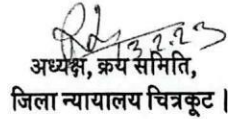 13.2.23
अध्यक्ष, क्रय समिति,
जिला न्यायालय चित्रकूट |